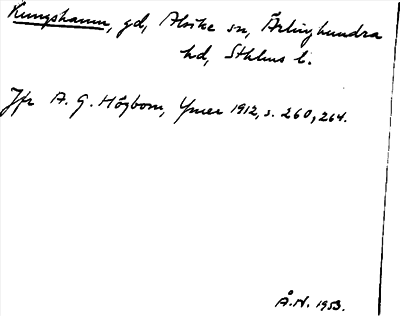 Kungshamn, gd, Alsike sn, Ärlinghundra
hd, Sthlms l.
Jfr A. G. Högbom, Ymer 1912, s. 260, 264.
Å.N. 1953.